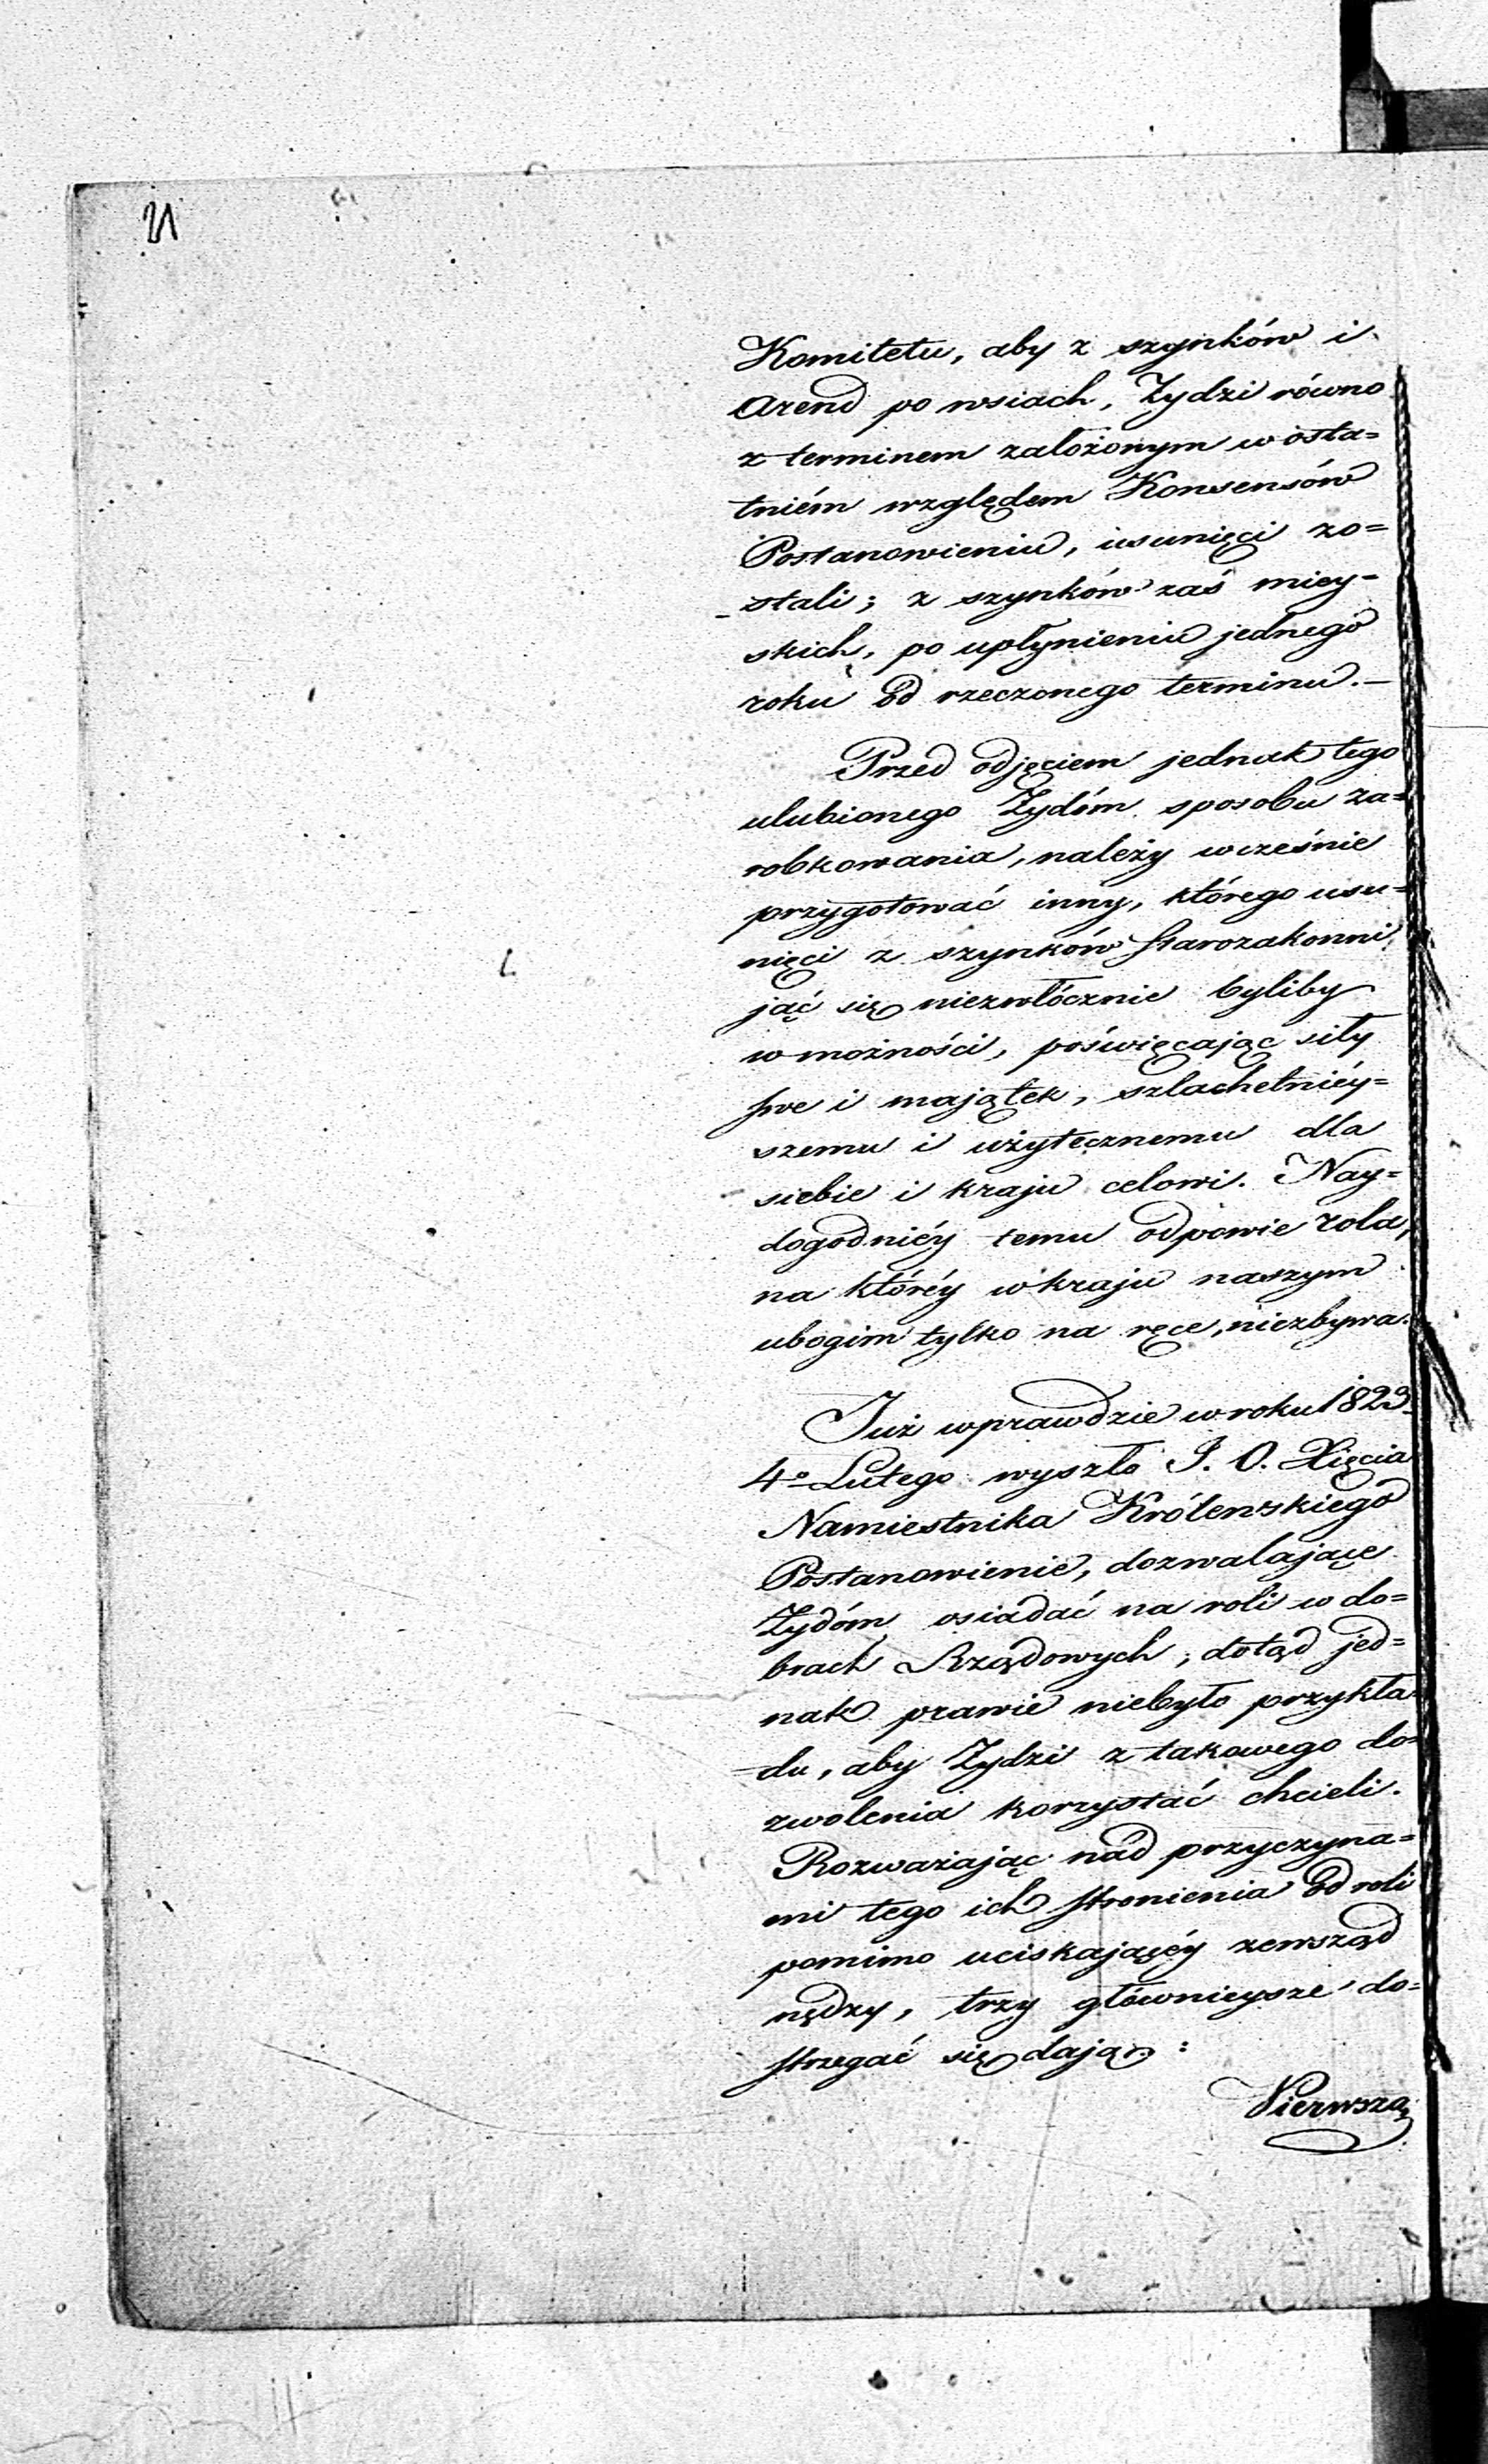 21
Komitetu, aby z szynków i
Arend po wsiach, Żydzi równo
z terminem założonym w osta=
tniém względem Konsensów
Postanowieniu, usunięci zo=
stali; z szynków zaś miey=
skich, po upłynieniu jednego
roku od rzeczonego terminu.—
Przed odjęciem jednak tego
ulubionego Żydóm sposobu za=
robkowania, należy wcześnie
przygotować inny, którego usu=
nięci z szynków Starozakonni,
jąć się niezwłócznie byliby
w możności, poświęcając siły
swe i majątek, szlachetniéy=
szemu i użytecznemu dla
siebie i kraju celowi. Nay=
dogodniéy temu odpowie rola,
na któréy w kraju naszym
ubogim tylko na ręce, niezbywa.
Już wprawdzie w roku 1823
4º Lutego wyszło J. O. Xięcia
Namiestnika Królewskiego
Postanowienie, dozwalające
Żydóm osiadać na roli w do=
brach Rządowych; dotąd jed=
nak prawie niebyło przykła=
du, aby Żydzi z takowego do=
zwolenia korzystać chcieli.
Rozważając nad przyczyna=
mi tego ich stronienia od roli
pomimo uciskającéy zewsząd
nędzy, trzy główniejsze do=
strzegać się dają:
Pierwsza,